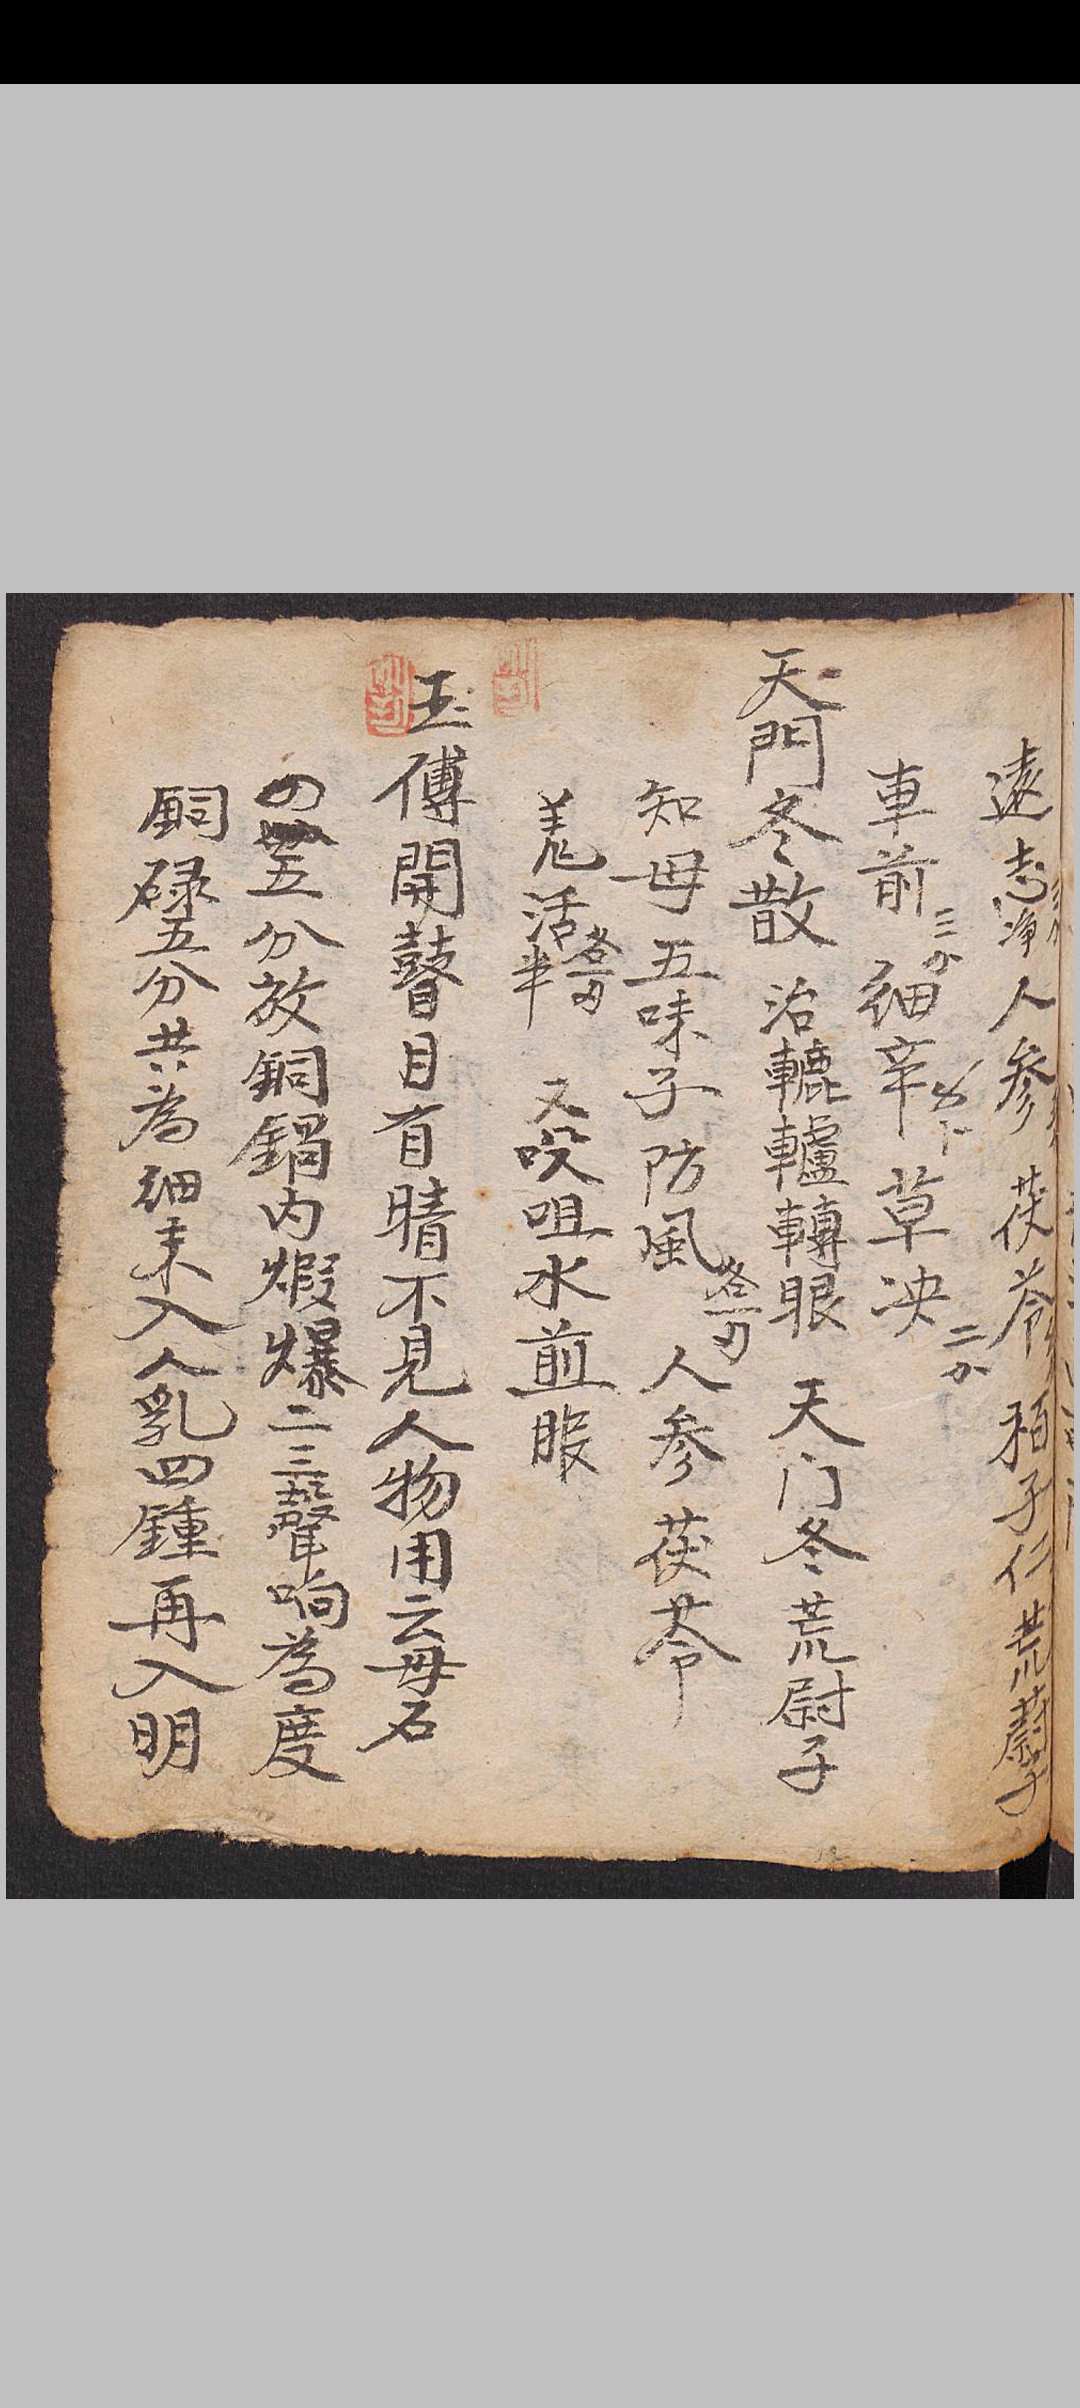 遠志净人参茯苓栢子仁荒蔚子
車前三分細辛下草决二分
天門冬散治轆轤轉眼天门冬荒尉子
知母五味子防風各一刃人参茯苓
羌活各一刃半又㕮咀水煎服
玉傅開瞽目有睛不見人物用云母石
五分放銅鍋内煆爆二三聲响為度
銅碌五分共為細末入人乳四鍾再入明